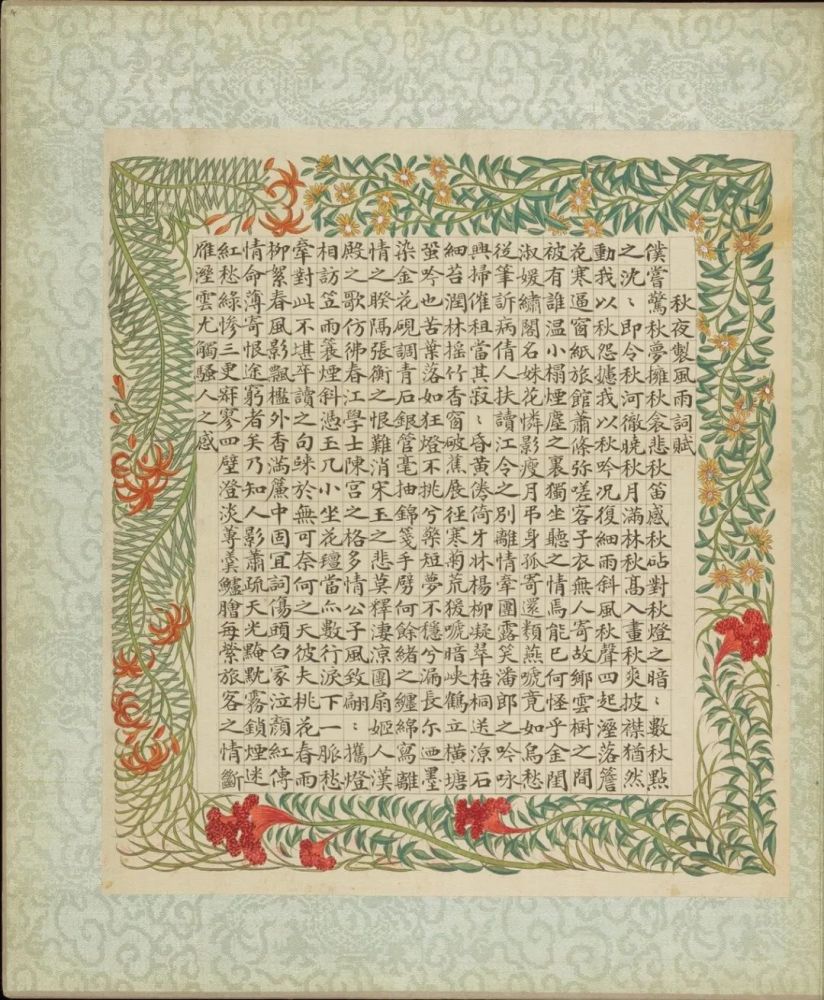 秋夜製風雨詞賦
僕嘗驚秋夢擁秋衾悲秋笛感秋砧對秋燈之暗〻數秋點
之沈〻即令秋河徹曉秋月滿林秋高入畫秋爽披襟猶然
動我以秋怨攄我以秋吟况復細雨斜風秋聲四起溼落簷
花寒逼窗紙旅館蕭條弥嗟客子衣無人寄故鄉雲樹之間
被有誰温小榻煙塵之裏獨坐聽之情焉能已何怪乎金閨
淑媛繡閣名姝花憐影瘦月弔身孤寄還類燕啼竟如烏愁
從筆訴病倩人扶讀江令之別離情牽團露笑潘郎之吟咏
興掃催租當其寂〻昏黃倦倚牙牀楊柳凝翠梧桐送涼石
細苔潤林摇竹香窗破蕉展徑寒菊荒猨啼暗峽鶴立橫塘
蛩吟也苦葉落如狂燈不挑兮藥短夢不穩兮漏長尔迺墨
染金花硯調青石銀管毫抽錦箋手劈何餘緒之纏綿寫離
情之睽隔張衡之恨難消宋玉之悲莫釋淒涼團扇姬人漢
殿之歌仿彿春江學士陳宮之格多情公子風致翩〻攜燈
相訪笠雨蓑煙斜憑玉几小坐花壇當亦數行淚下一脈愁
牽對此不堪卒讀之句睐於無可奈何之天彼夫桃花春雨
柳絮春風影飄檻外香滿簾中固宜詞傷頭白冢泣顏紅傳
情命薄寄恨途窮者矣乃知人影蕭疏天光黯黕霧鎖煙迷
紅愁綠慘三更寂寥四壁澄淡蓴羹鱸膾每縈旅客之情斷
雁溼雲尤觸騷人之感